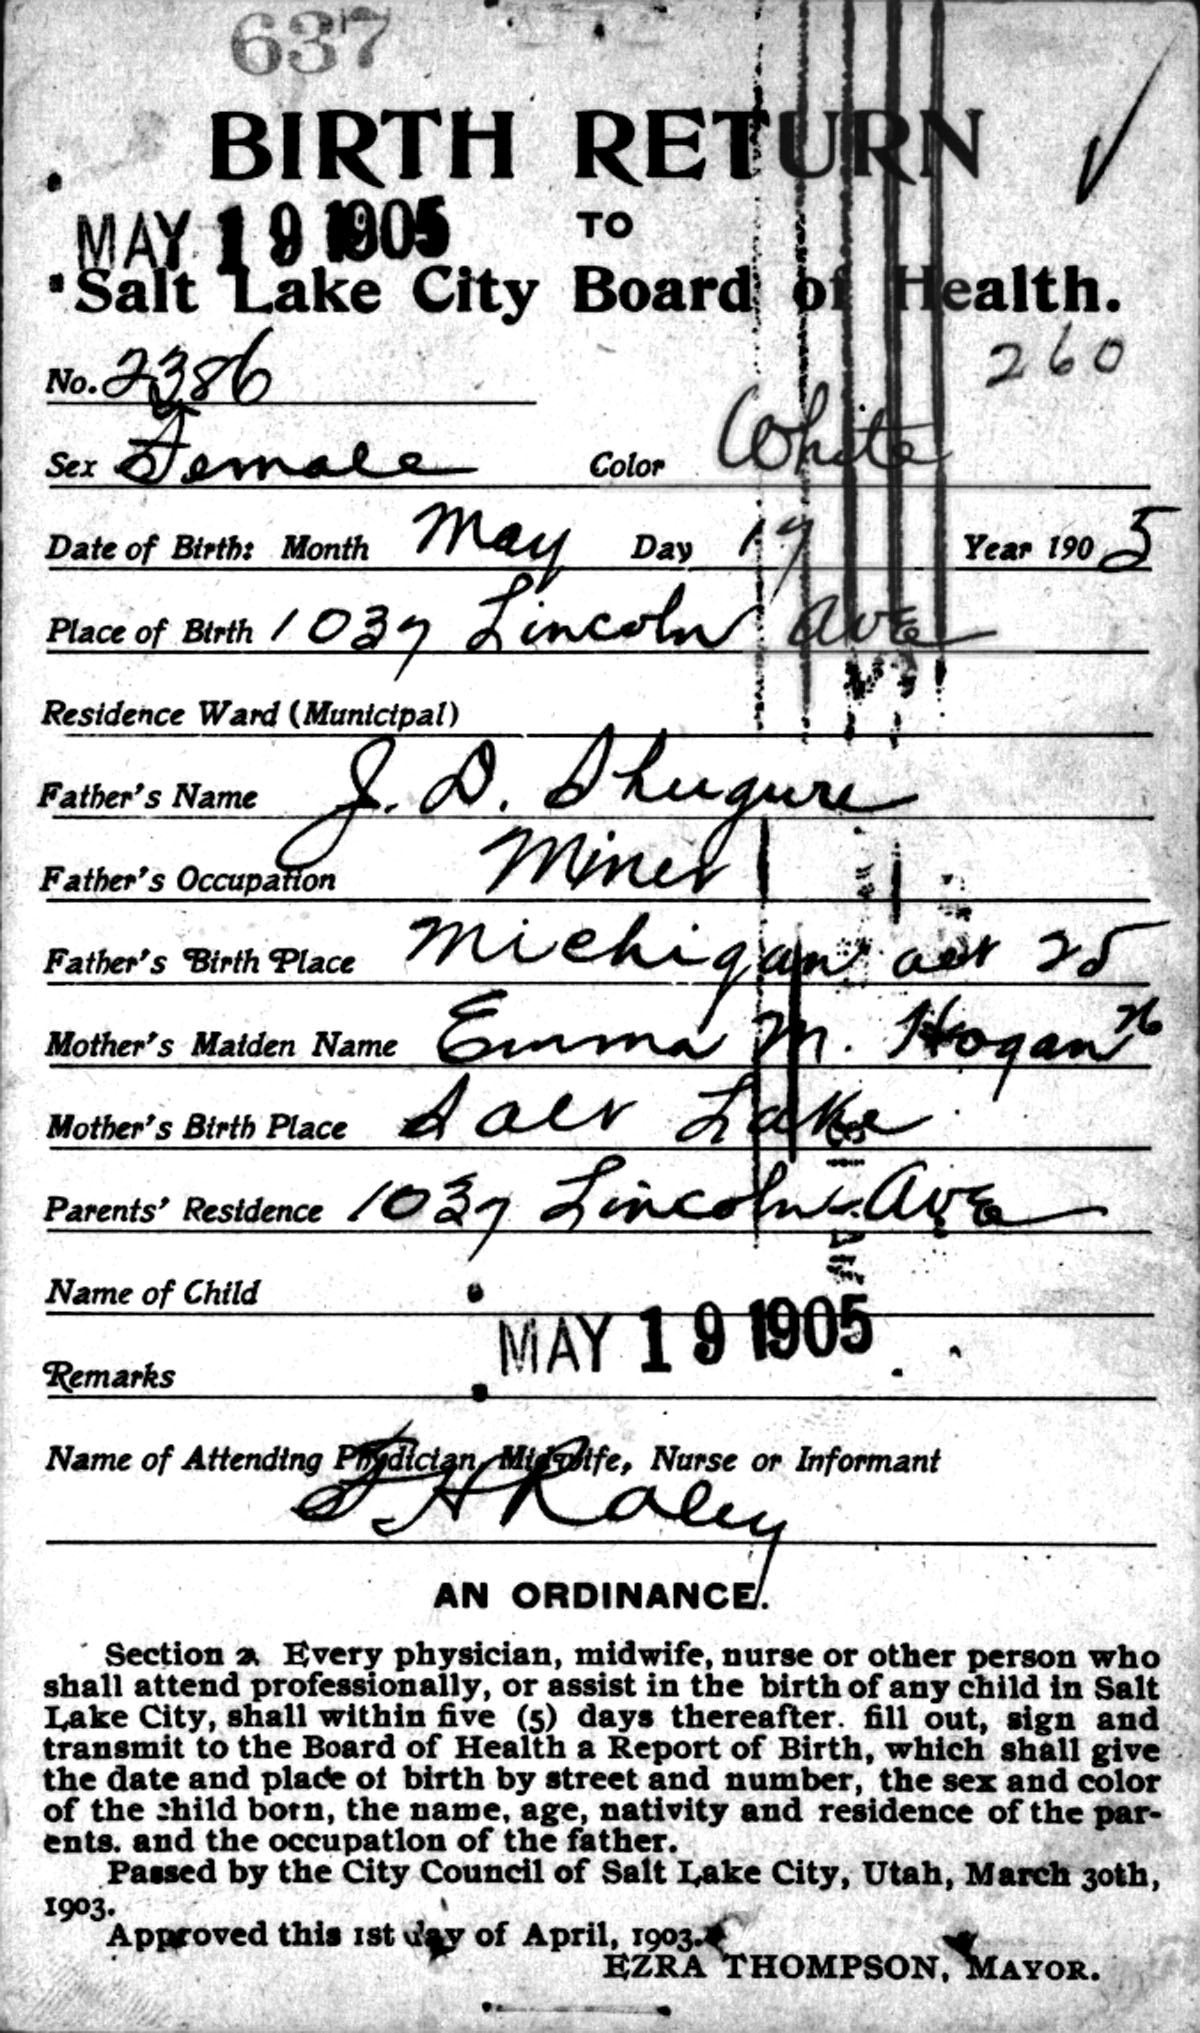 637
BIRTH RETURN
MAY 19 1905 TO
Salt Lake City Board of Health.
No. 2386 260
Sex Female Color White
Date of Birth: Month May Day 17 Year 1905
Place of Birth 1037 Lincoln Ave
Residence Ward (Municipal)
Father's Name J. D. Shugure
Father's Occupation Miner
Father's Birth Place Michigan aet 25
Mother's Maiden Name Emma M. Hogan 26
Mother's Birth Place Salt Lake
Parents' Residence 1037 Lincoln Ave
Name of Child
MAY 19 1905
Remarks
Name of Attending Physician, Midwife, Nurse or Informant
Raley
AN ORDINANCE.
Section 2. Every physician, midwife, nurse or other person who
shall attend professionally, or assist in the birth of any child in Salt
Lake City, shall within five (5) days thereafter. fill out, sign and
transmit to the Board of Health a Report of Birth, which shall give
the date and place of birth by street and number, the sex and color
of the child born, the name, age, nativity and residence of the par-
ents. and the occupation of the father.
Passed by the City Council of Salt Lake City, Utah, March 30th,
1903.
Approved this 1st day of April, 1903.
EZRA THOMPSON, MAYOR.